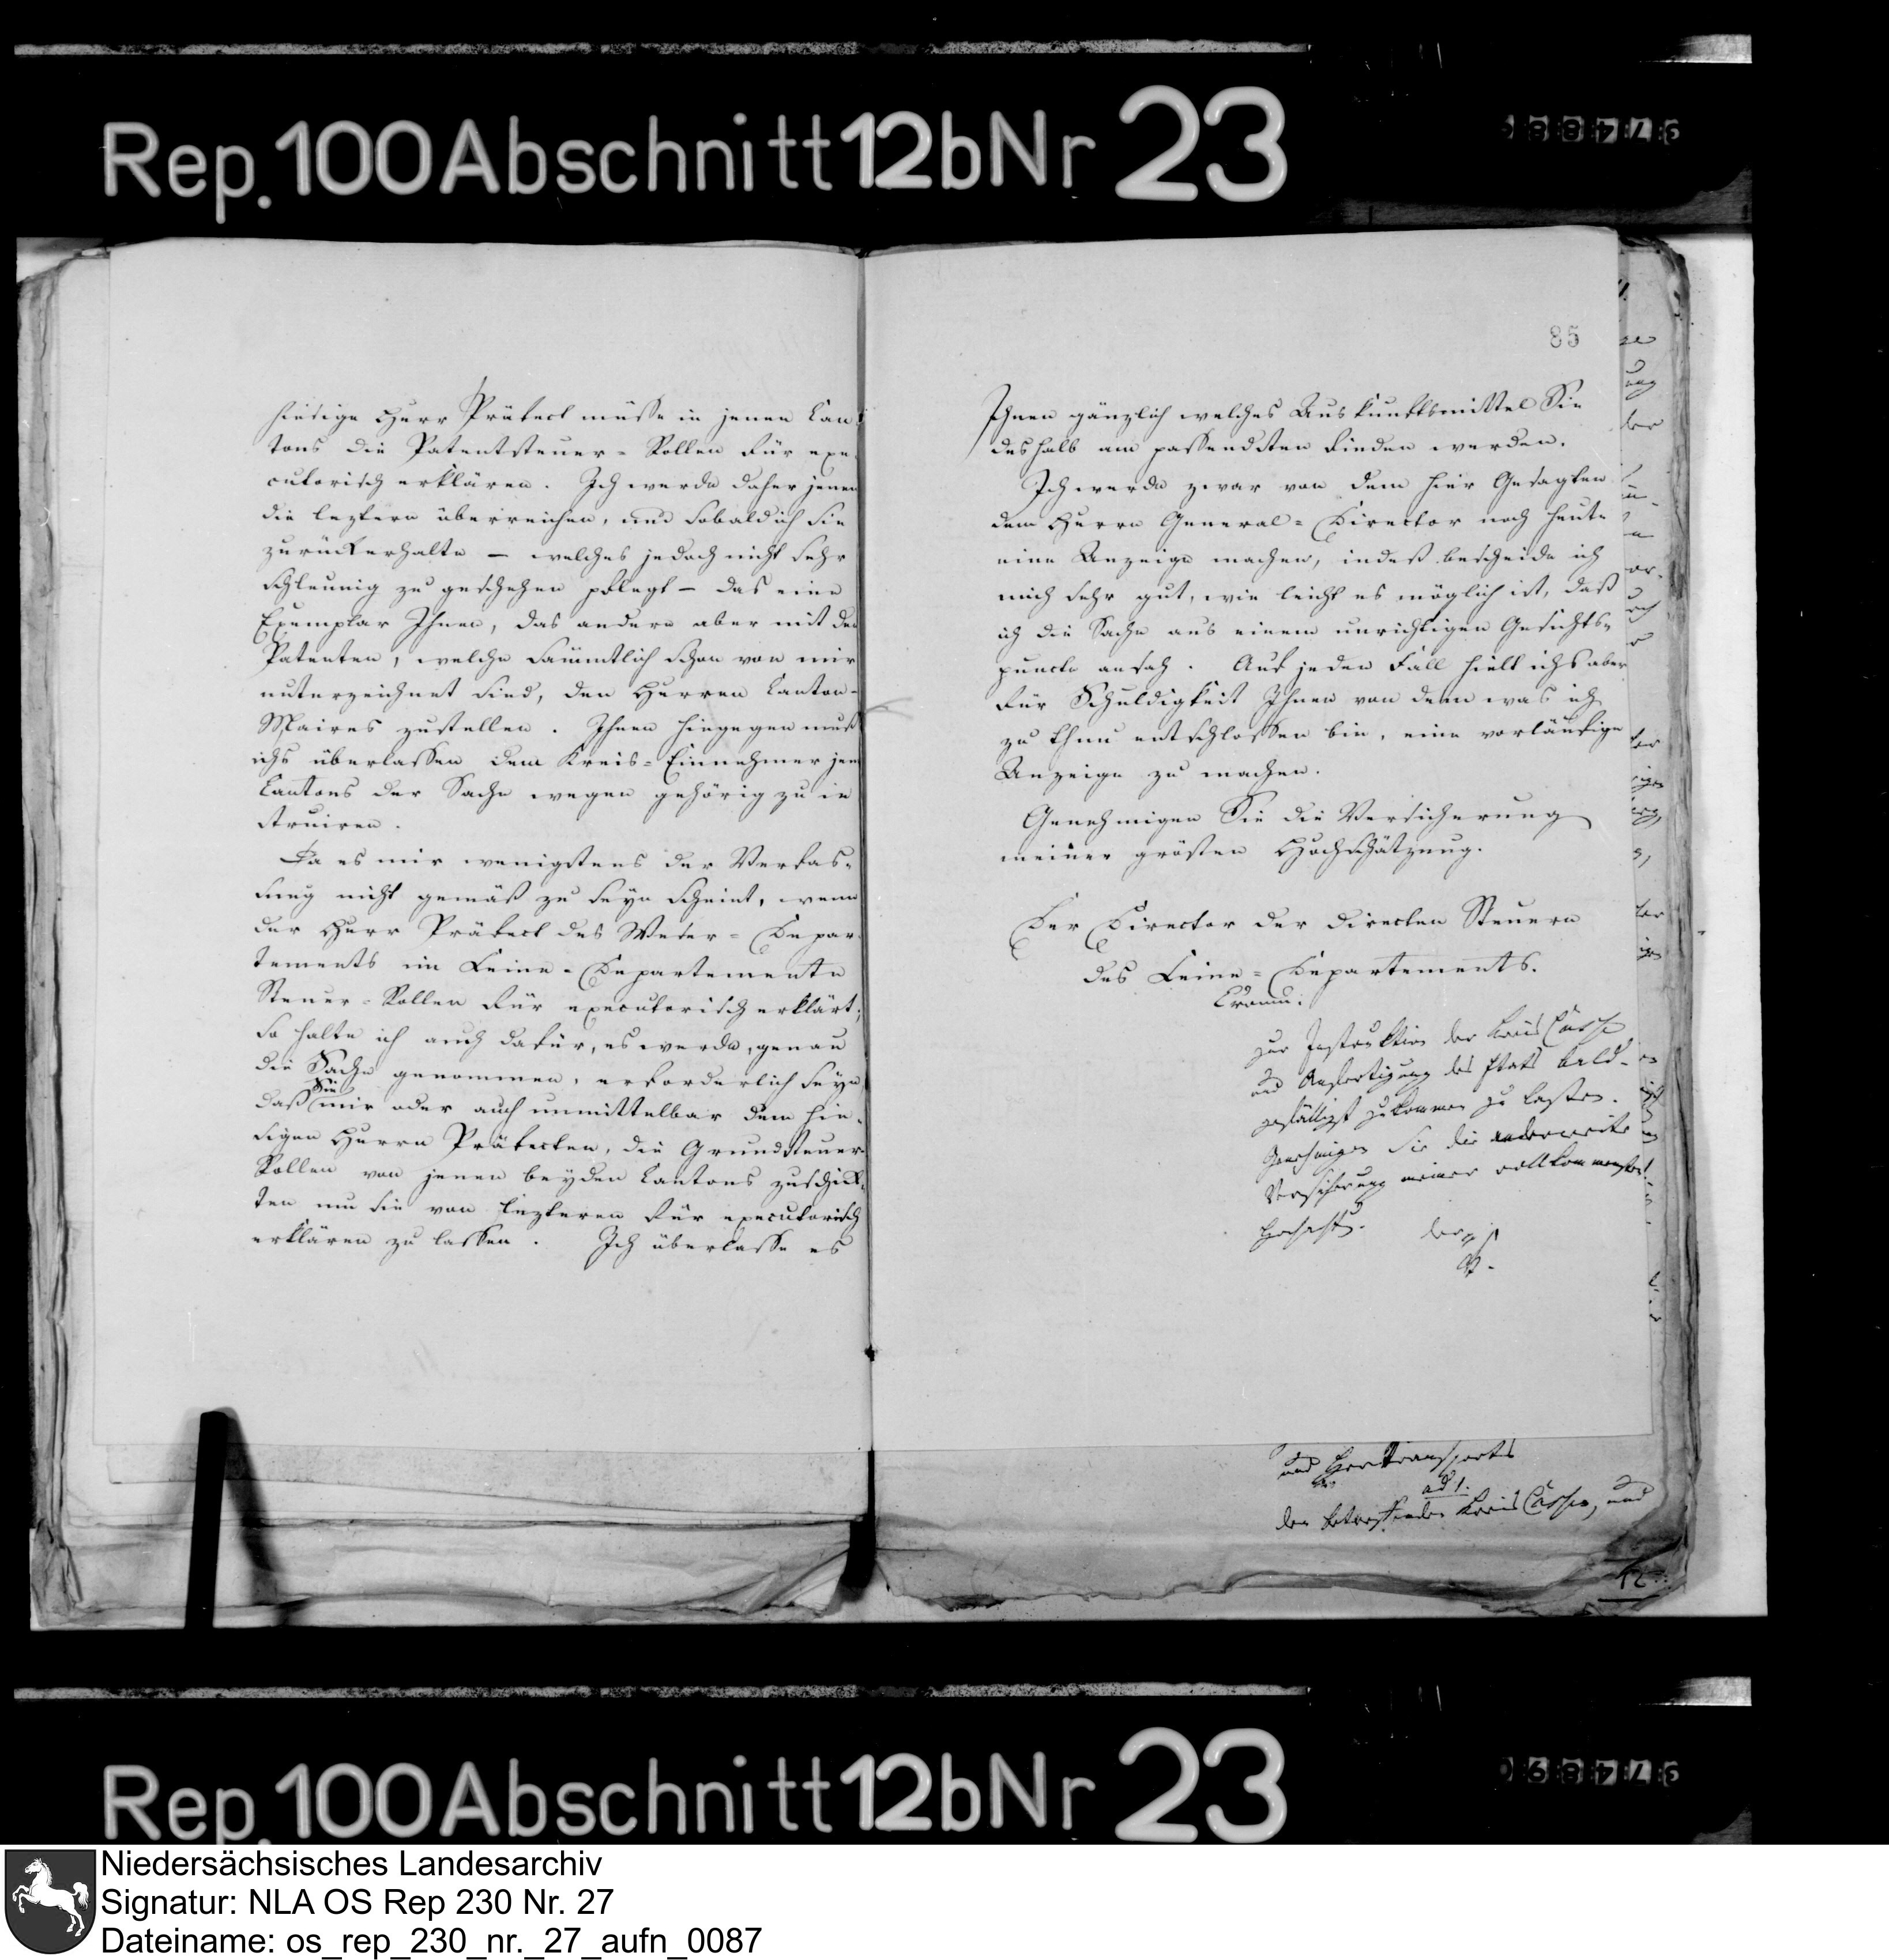 Rep. 100 Abschnitt 12b Nr 23
hiesige Herr Präfect müsse in jenen Can¬
tons die Patentsteuer-Rollen für exe¬
cutorisch erklären. Ich werde daher jenem
die leztern überreichen, und sobald ich sie
zurückerhalte — welches jedoch nicht sehr
schleunig zu geschehen pflegt — das eine
Exemplar Ihnen, das andere aber mit den
Patenten, welche sämmtlich schon von mir
unterzeichnet sind, den Herren Canton-
Maires zustellen. Ihnen hingegen muß
ichs überlassen dem Kreis-Einnehmer jen
Cantons der Sache wegen gehörig zu in
struiren.
Da es mir wenigstens der Verfas¬
sung nicht gemäß zu seyn scheint, wenn
der Herr Präfect des Weser-Depar¬
tements im Leine-Departemente
Steuer-Rollen für executorisch erklärt;
so halte ich auch dafür, es werde, genau
die Sache genommen, erforderlich seyn
daß Sie mir oder auch unmittelbar dem hie¬
sigen Herrn Präfecten, die Grundsteuer
Rollen von jenen beyden Cantons zuschick¬
ten um sie von lezterem für executorisch
erklären zu lassen. Ich überlasse es
85
Ihnen gänzlich welches Auskunftsmittel Sie
deshalb am passendsten finden werden.
Ich werde zwar von dem hier Gesagten
dem Herrn General-Director noch heute
eine Anzeige machen, indeß bescheide ich
mich sehr gut, wie leicht es möglich ist, daß
ich die Sache aus einem unrichtigen Gesichts¬
puncte ansah. Auf jeden Fall hielt ichs aber
für Schuldigkeit Ihnen von dem was ich
zu thun entschlossen bin, eine vorläufige
Anzeige zu machen.
Genehmigen Sie die Versicherung
meiner grösten Hochschätzung.
Der Director der directen Steuern
des Leine-Departements.
zur Instruktion der Kreis Casse
und Anfertigung des Etats bald¬
gefälligst zukommen zu lassen.
Genehmigen Sie die anderweite
Versicherung meiner vollkommensten
Hochacht.
und
ad 1.
den betreffenden Kreis Cassen, und
12
Rep. 100 Abschnitt 12b Nr 23
Niedersächsisches Landesarchiv
Signatur: NLA OS Rep 230 Nr. 27
Dateiname: os_rep_230_nr._27_aufn_0087